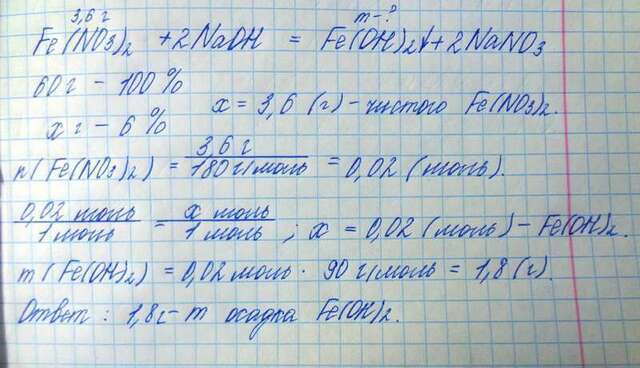 3,6 г m-?
Fe(NO3)2 + 2NaOH = Fe(OH)2↓ + 2NaNO3
60 г – 100 %
x г – 6 %
x = 3,6 (г) – чистого Fe(NO3)2.
n(Fe(NO3)2) = 3,6 г / 180 г/моль = 0,02 (моль).
0,02 моль / 1 моль = x моль / 1 моль ; x = 0,02 (моль) – Fe(OH)2.
m(Fe(OH)2) = 0,02 моль · 90 г/моль = 1,8 (г).
Ответ : 1,8г – m осадка Fe(OH)2.